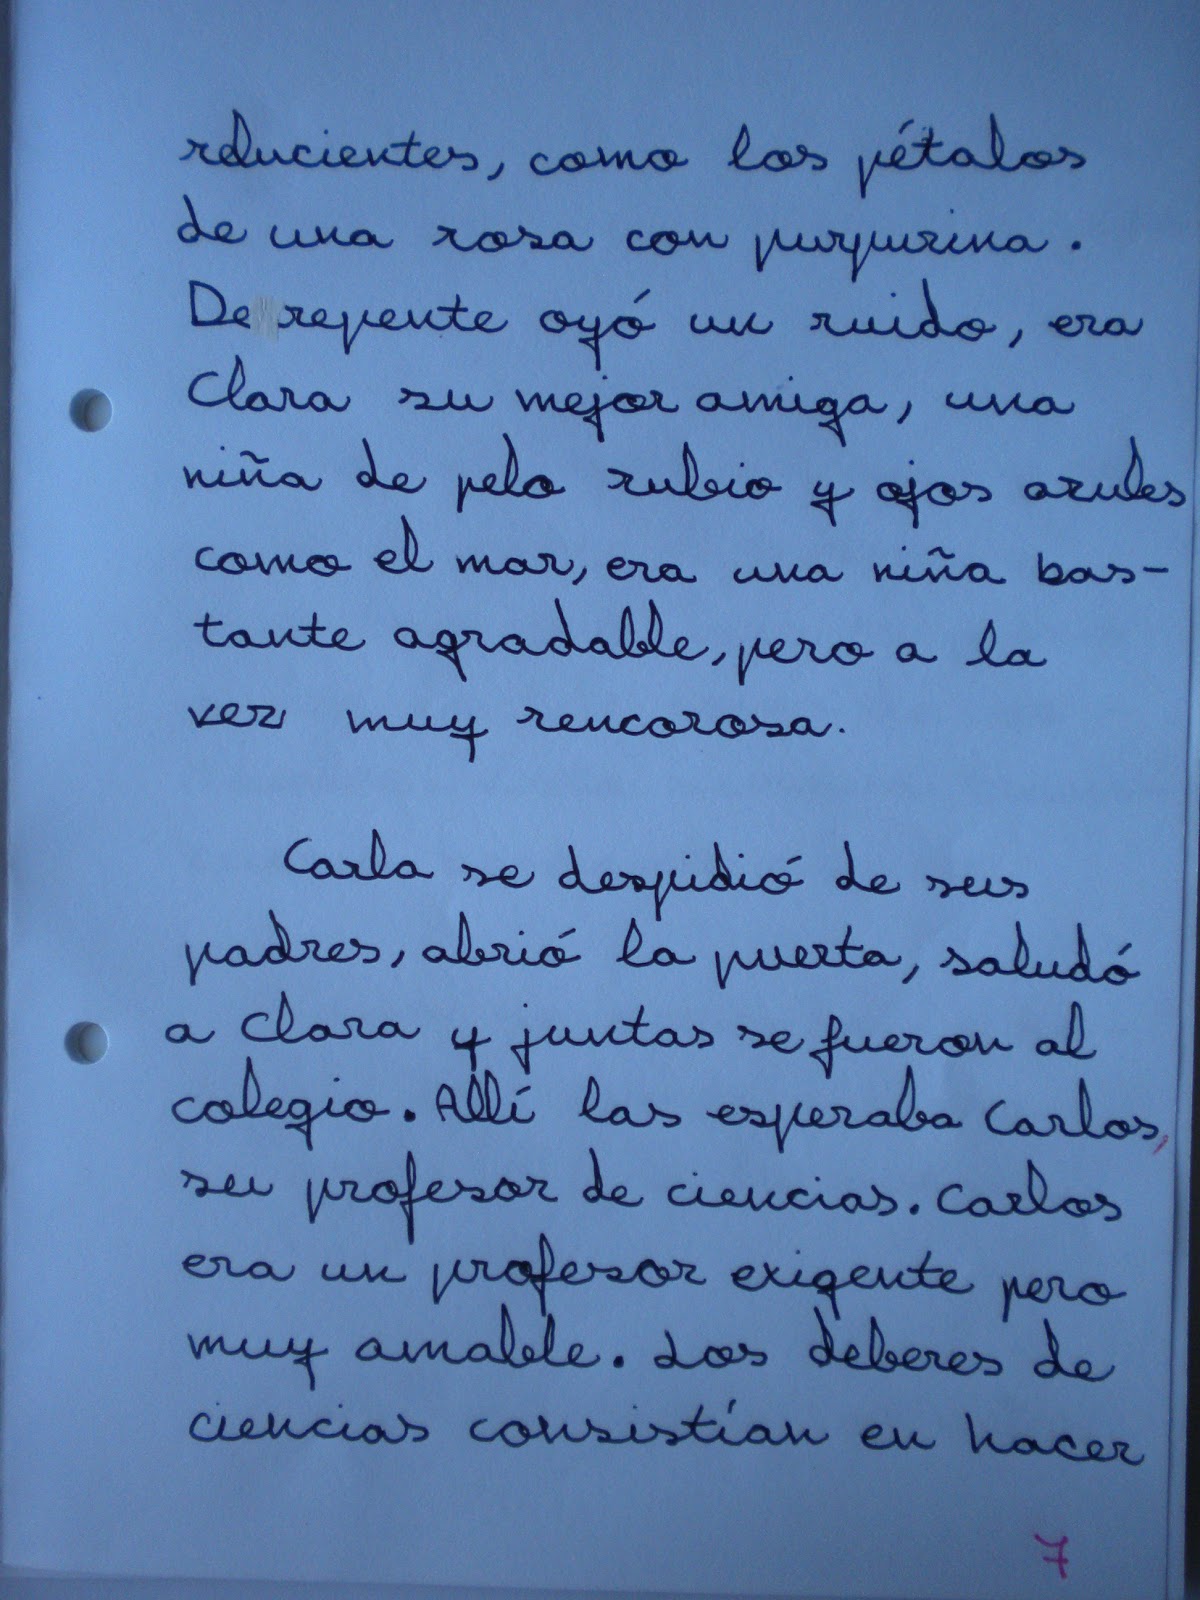 relucientes, como los pétalos
de una rosa con purpurina.
De repente oyó un ruido, era
Clara su mejor amiga, una
niña de pelo rubio y ojos azules
como el mar, era una niña bas-
tante agradable, pero a la
vez muy rencorosa.
Carla se despidió de sus
padres, abrió la puerta, saludó
a Clara y juntas se fueron al
colegio. Allí las esperaba Carlos,
su profesor de ciencias. Carlos
era un profesor exigente pero
muy amable. Los deberes de
ciencias consistían en hacer
7